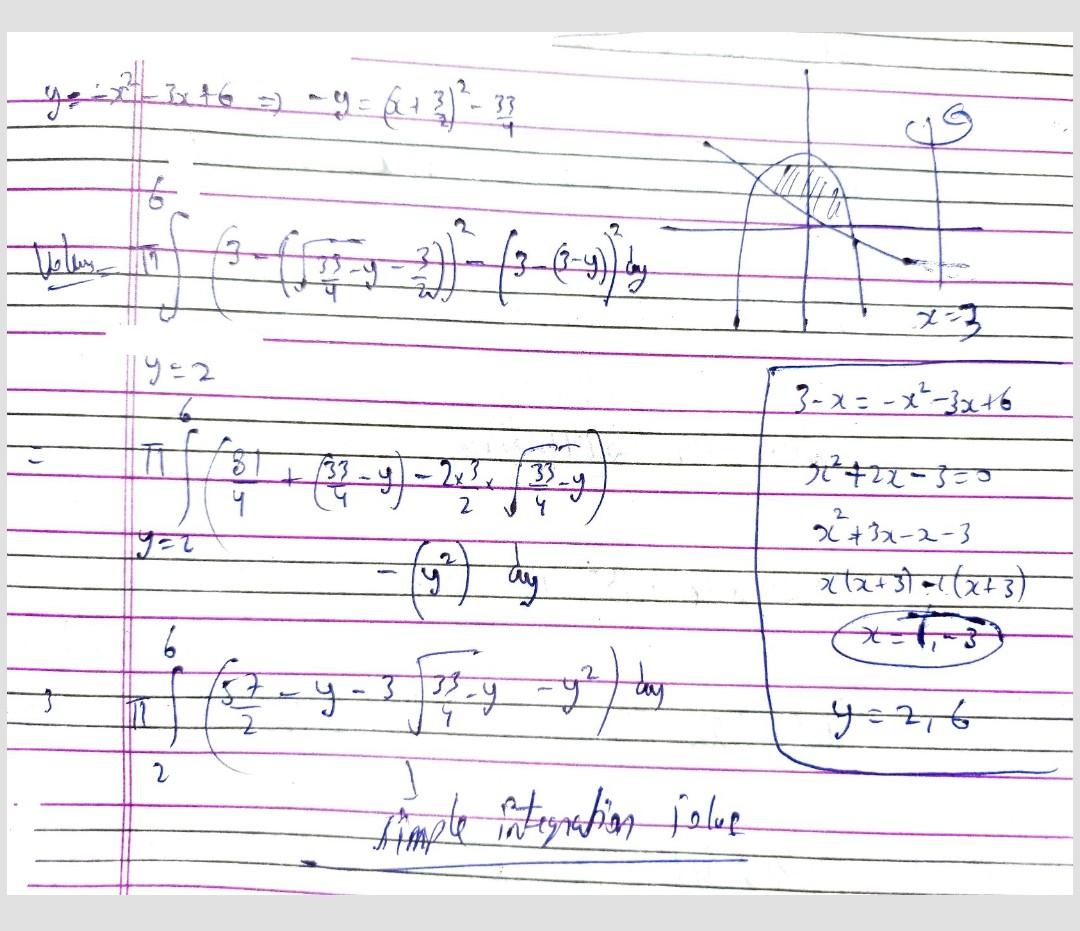 y = -x² - 3x + 6 ⇒ -y = (x + 3/2)² - 33/4
x = 3
Volume = π ∫_{y=2}^{6} (3 - (√(33/4 - y) - 3/2))² - (3 - (3-y))² dy
= π ∫_{y=2}^{6} (81/4 + (33/4 - y) - 2×3/2 × √(33/4 - y))
- (y²) dy
π ∫_{2}^{6} (57/2 - y - 3 √(33/4 - y) - y²) dy
simple integration
3 - x = -x² - 3x + 6
x² + 2x - 3 = 0
x² + 3x - x - 3
x(x + 3) - 1(x + 3)
x = 1, -3
y = 2, 6